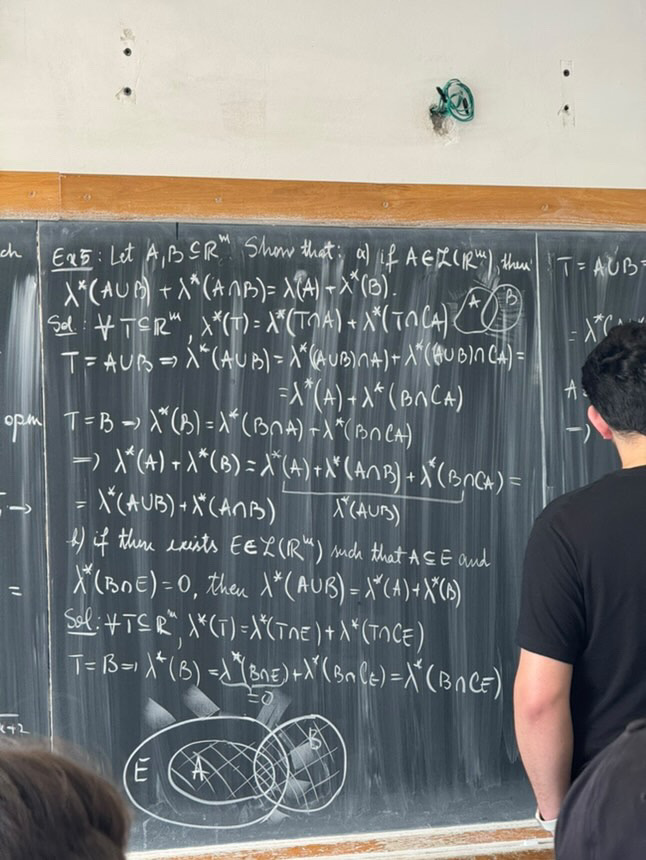 ch
Ex5: Let A, B ⊆ ℝᵐ. Show that: a) if A ∈ ℒ(ℝᵐ) then
λ*(A∪B) + λ*(A∩B) = λ(A) + λ*(B).
Sol: ∀ T ⊆ ℝᵐ, λ*(T) = λ*(T∩A) + λ*(T∩CA)
A B
T = A∪B ⇒ λ*(A∪B) = λ*((A∪B)∩A) + λ*((A∪B)∩CA) =
= λ*(A) + λ*(B∩CA)
T = B ⇒ λ*(B) = λ*(B∩A) + λ*(B∩CA)
⇒ λ*(A) + λ*(B) = λ*(A) + λ*(A∩B) + λ*(B∩CA) =
= λ*(A∪B) + λ*(A∩B) λ*(A∪B)
b) if there exists E ∈ ℒ(ℝᵐ) such that A ⊆ E and
λ*(B∩E) = 0, then λ*(A∪B) = λ*(A) + λ*(B)
Sol: ∀ T ⊆ ℝᵐ, λ*(T) = λ*(T∩E) + λ*(T∩CE)
T = B ⇒ λ*(B) = λ*(B∩E) + λ*(B∩CE) = λ*(B∩CE)
=0
E A B
open
→
=
T = A∪B
= λ*(
A
⇒